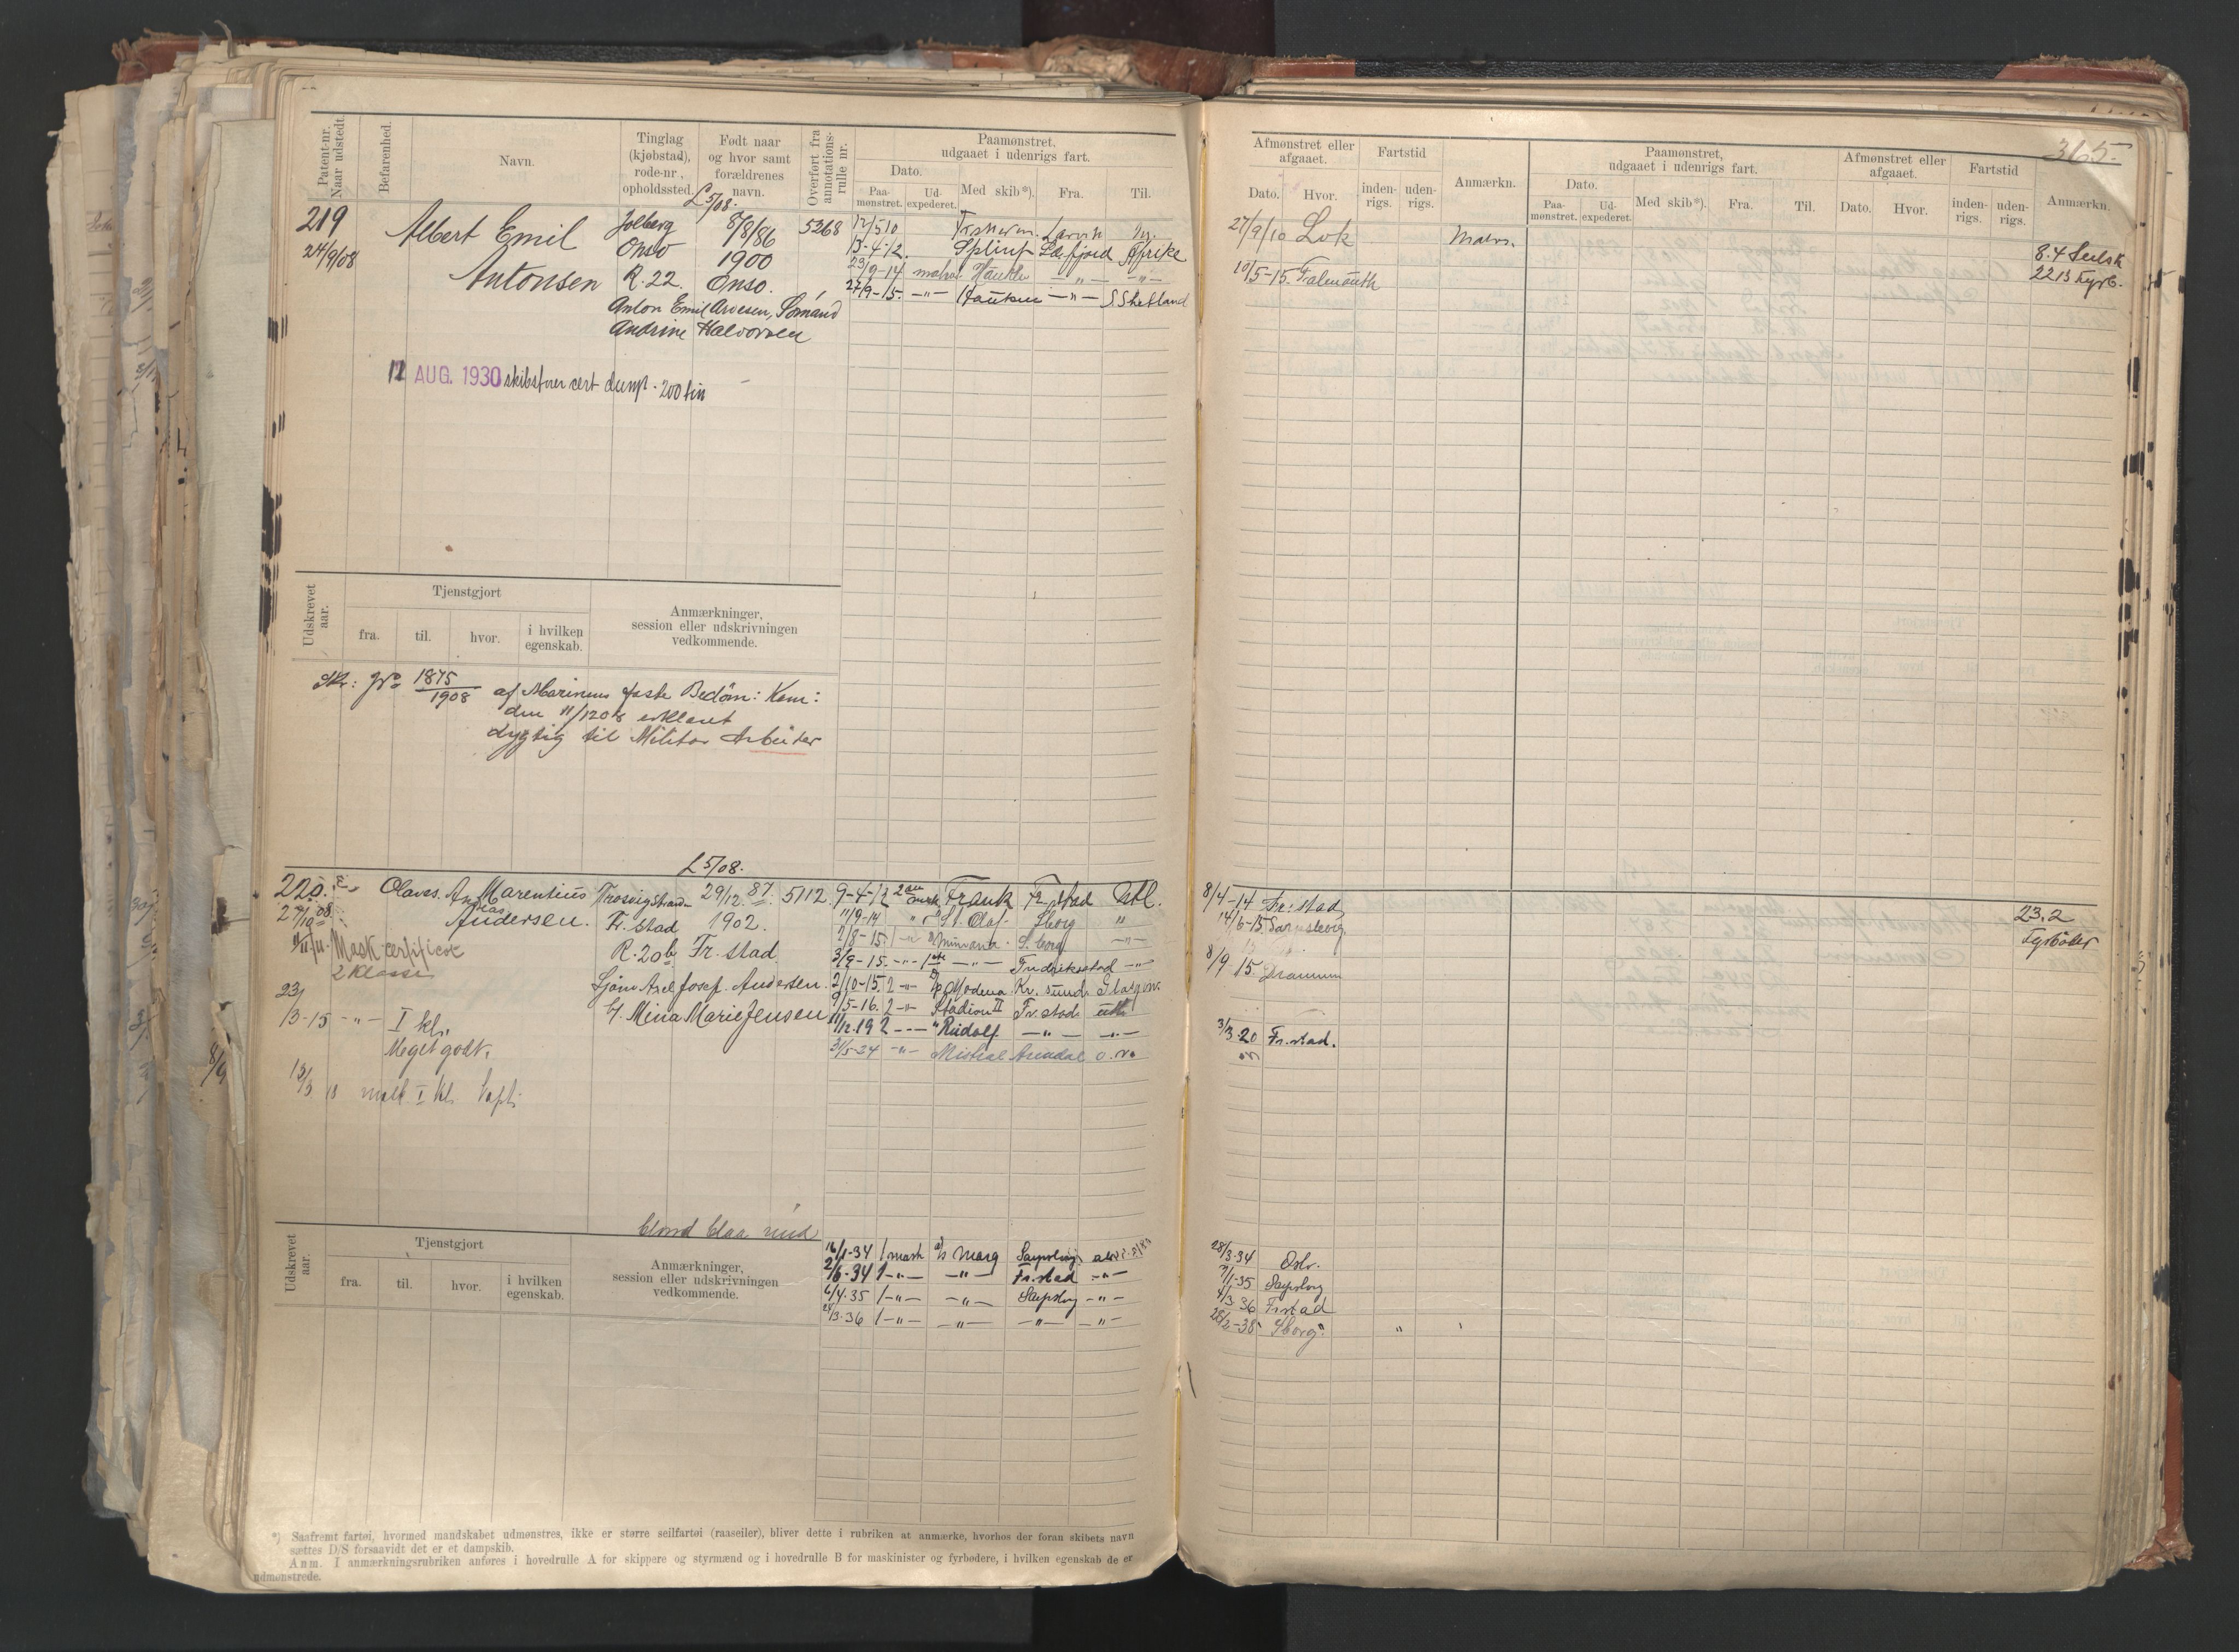 365.
Patent-nr. Naar udstedt.
Befarenhed.
Navn.
Tinglag (kjøbstad), rode-nr., opholdssted.
Født naar og hvor samt forældrenes navn.
Overført fra annotations-rulle nr.
Paamønstret, udgaaet i udenrigs fart.
Dato.
Paa-mønstret.
Ud-expederet.
Med skib*).
Fra.
Til.
Afmønstret eller afgaaet.
Dato.
Hvor.
Fartstid
inden-rigs.
uden-rigs.
Anmærkn.
Paamønstret, udgaaet i udenrigs fart.
Dato.
Paa-mønstret.
Ud-expederet.
Med skib*).
Fra.
Til.
Afmønstret eller afgaaet.
Dato.
Hvor.
Fartstid
inden-rigs.
uden-rigs.
Anmærkn.
£ 5/08.
219
24/9/08
Albert Emil
Antonsen
Onsø
R. 22.
8/8/86
1900
Onsø.
5268
Anton Emil Arvesen, Sømand
Andrine Halvorsen
12/5 10 Larvik
13-4-12. Afrika
23/9-14 -"- -"-
27/9-15. -"- -"- S Shetland
27/9/10 Lok
10/5-15. Falmouth
8.4 Seilsk
22.13 Fyrb.
12 AUG. 1930 skibsfører cert damp - 200 tin
Udskrevet aar.
Tjenstgjort
fra.
til.
hvor.
i hvilken egenskab.
Anmærkninger, session eller udskrivningen vedkommende.
Skr: No 1875/1908 af Marinens faste Bedøm: Kom:
den 11/12 08 erklæret
dygtig til Militær Arbeider
£ 5/08.
220.
27/10 08
Olaves Marentius
Andersen.
Trosvigstrand
Fr. stad
R. 20b
29/12. 87.
1902.
Fr. stad
5112
Sjøm Axel Josef. Andersen.
H. Mina Marie Jensen
Mask-certificat
2 Klasse
23/3-15 -"- I kl.
Meget godt.
9-4-12 Frank Fr. stad Utl.
11/9-14 St. Olaf Sborg "
7/8-15. S. borg -"-
3/9-15. -"- -"- Fredriksstad -"-
2/10-15. 2 -"- Modena Kr. sund Glasgow.
9/5-16. 2 -"- Stadion II Fr. stad utl.
11/12.19 2 -"- Rudolf -"- -"-
31/5-34 -"- Mistral Arendal
8/4-14 Fr: stad,
14/6-15. Sarpsborg.
8/9 15 Drammen
3/3 20 Fr. stad.
23.2
Fyrbøder
blond blaa
Udskrevet aar.
Tjenstgjort
fra.
til.
hvor.
i hvilken egenskab.
Anmærkninger, session eller udskrivningen vedkommende.
16/1-34 1 mask Sarpsborg
2/6-34 1 -"- -"- Fr. stad -"-
6/4-35 1 -"- -"- Sarpsborg -"-
24/3-36 1 -"- -"- -"- -"-
28/3-34
7/1-35 Sarpsborg
4/3 36 Frstad
28/2-38 Sborg
*) Saafremt fartøi, hvormed mandskabet udmønstres, ikke er større seilfartøi (raaseiler), bliver dette i rubriken at anmærke, hvorhos der foran skibets navn
sættes D/S forsaavidt det er et dampskib.
Anm. I anmærkningsrubriken anføres i hovedrulle A for skippere og styrmænd og i hovedrulle B for maskinister og fyrbødere, i hvilken egenskab de er
udmønstrede.